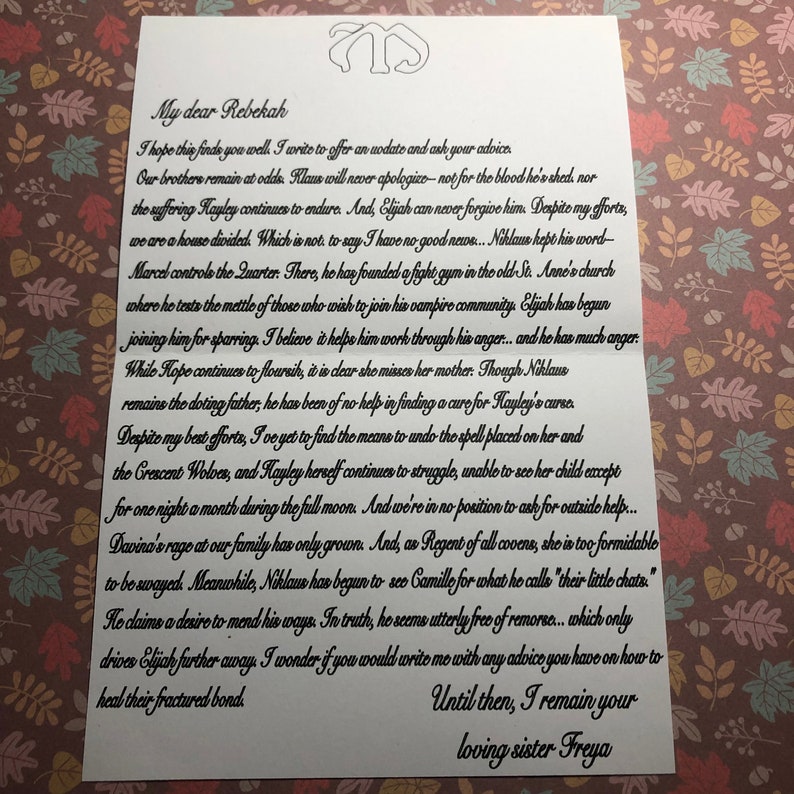 My dear Rebekah
I hope this finds you well. I write to offer an uodate and ask your advice.
Our brothers remain at odds. Klaus will never apologize-- not for the blood he's shed. nor
the suffering Hayley continues to endure. And, Elijah can never forgive him. Despite my efforts,
we are a house divided. Which is not. to say I have no good news... Niklaus kept his word--
Marcel controls the Quarter. There, he has founded a fight gym in the old St. Anne's church
where he tests the mettle of those who wish to join his vampire community. Elijah has begun
joining him for sparring. I believe it helps him work through his anger... and he has much anger.
While Hope continues to floursih, it is clear she misses her mother. Though Niklaus
remains the doting father, he has been of no help in finding a cure for Hayley's curse.
Despite my best efforts, I've yet to find the means to undo the spell placed on her and
the Crescent Wolves, and Hayley herself continues to struggle, unable to see her child except
for one night a month during the full moon. And we're in no position to ask for outside help...
Davina's rage at our family has only grown. And, as Regent of all covens, she is too formidable
to be swayed. Meanwhile, Niklaus has begun to see Camille for what he calls "their little chats."
He claims a desire to mend his ways. In truth, he seems utterly free of remorse... which only
drives Elijah further away. I wonder if you would write me with any advice you have on how to
heal their fractured bond.
Until then, I remain your
loving sister Freya